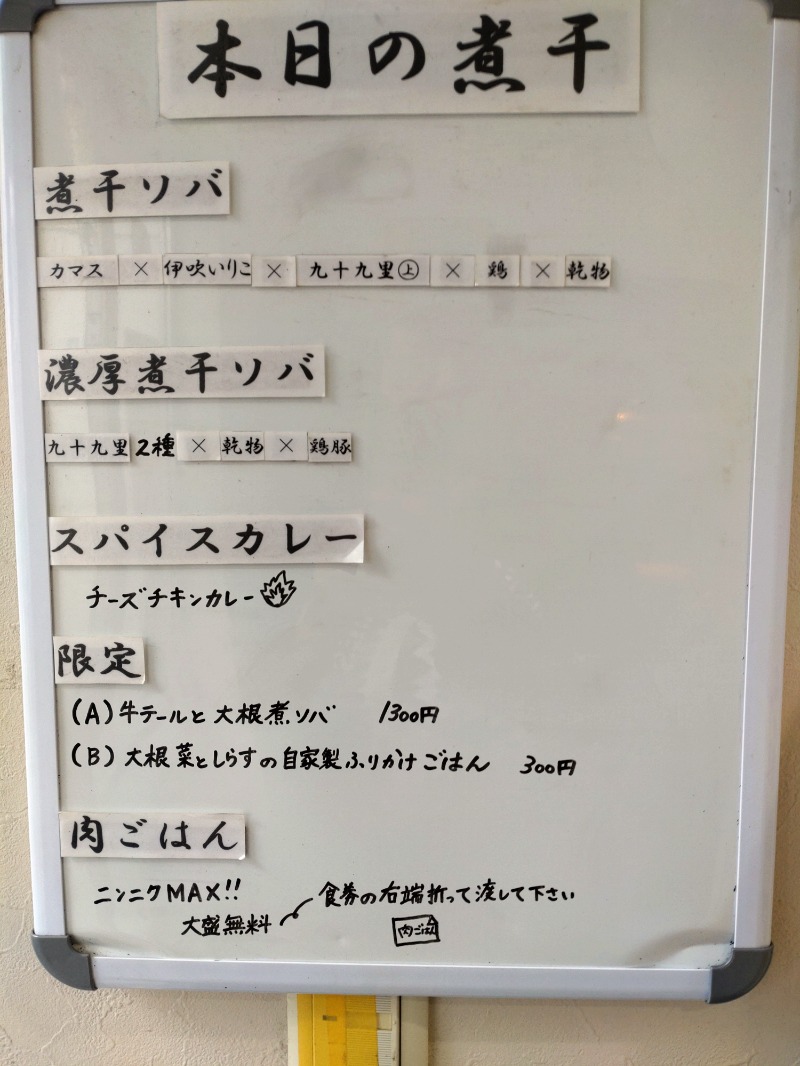 本日の煮干
煮干ソバ
カマス × 伊吹いりこ × 九十九里㊤ × 鶏 × 乾物
濃厚煮干ソバ
九十九里 2種 × 乾物 × 鶏豚
スパイスカレー
チーズチキンカレー
限定
(A) 牛テールと大根煮ソバ 1300円
(B) 大根菜としらすの自家製ふりかけごはん 300円
肉ごはん
ニンニクMAX!!
食券の右端折って渡して下さい
大盛無料
肉ごはん